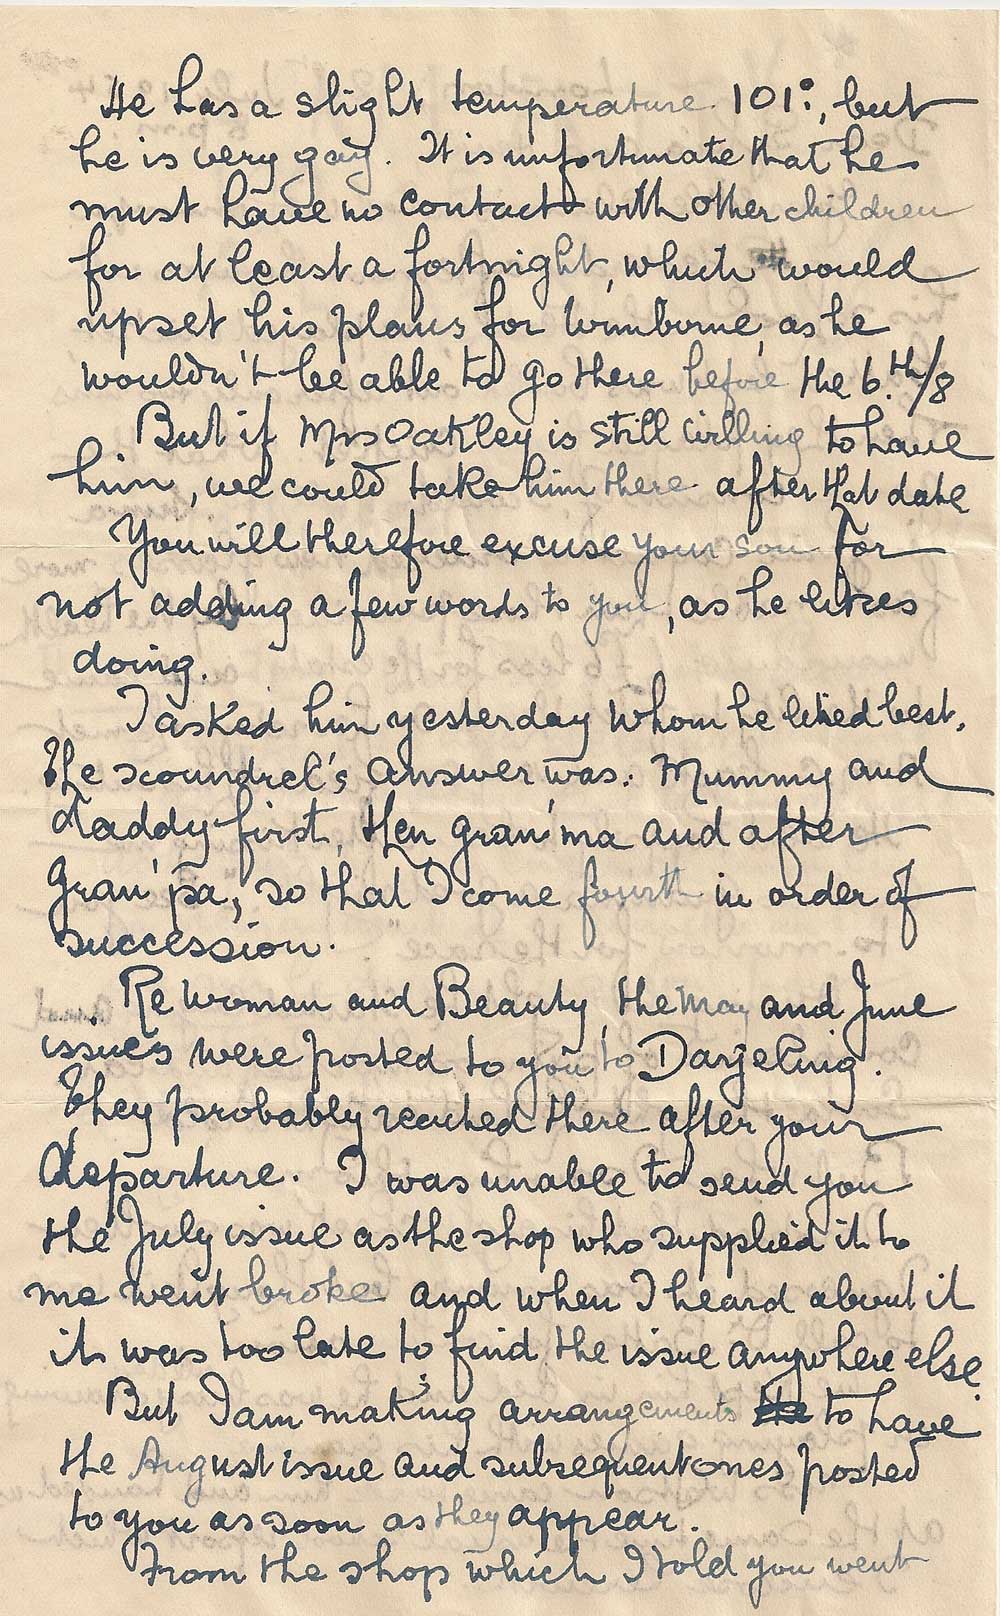 He has a slight temperature 101°, but
he is very gay. It is unfortunate that he
must have no contact with other children
for at least a fortnight, which would
upset his plans for Wimborne, as he
wouldn't be able to go there before the 6.th/8
But if Mrs Oakley is still willing to have
him, we could take him there after that date
You will therefore excuse your son for
not adding a few words to you, as he likes
doing.
I asked him yesterday whom he liked best.
The scoundrel's answer was: Mummy and
daddy first, then gran'ma and after
gran'pa, so that I come fourth in order of
succession.
Re Woman and Beauty, the May and June
issues were posted to you to Darjeling.
They probably reached there after your
departure. I was unable to send you
the July issue as the shop who supplied it to
me went broke and when I heard about it
it was too late to find the issue anywhere else.
But I am making arrangements to have
the August issue and subsequent ones posted
to you as soon as they appear.
From the shop which I told you went